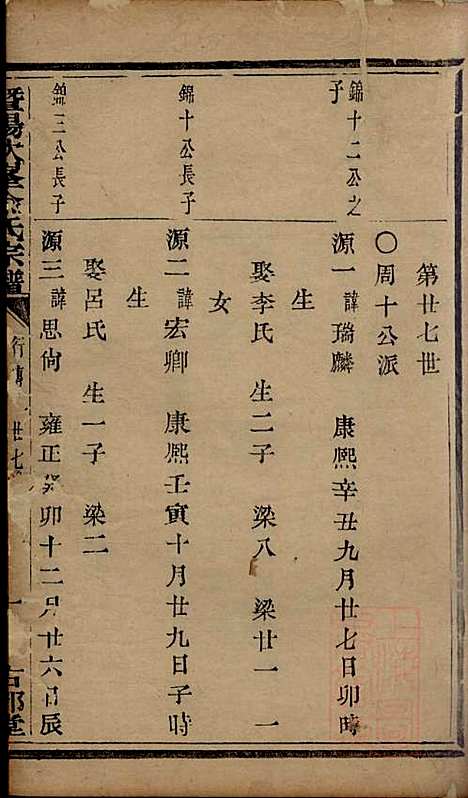 第廿七世
〇周十公派
錦十二公之子
源一 諱瑞麟 康熙辛丑九月廿七日卯時
生
娶李氏 生二子 梁八 梁廿一 一
女
錦十公長子
源二 諱宏卿 康熙壬寅十月廿九日子時
生
娶呂氏 生一子 梁二
錦三公長子
源三 諱思尙 雍正癸卯十二月廿六日辰
暨陽 氏宗譜
行傳 廿七